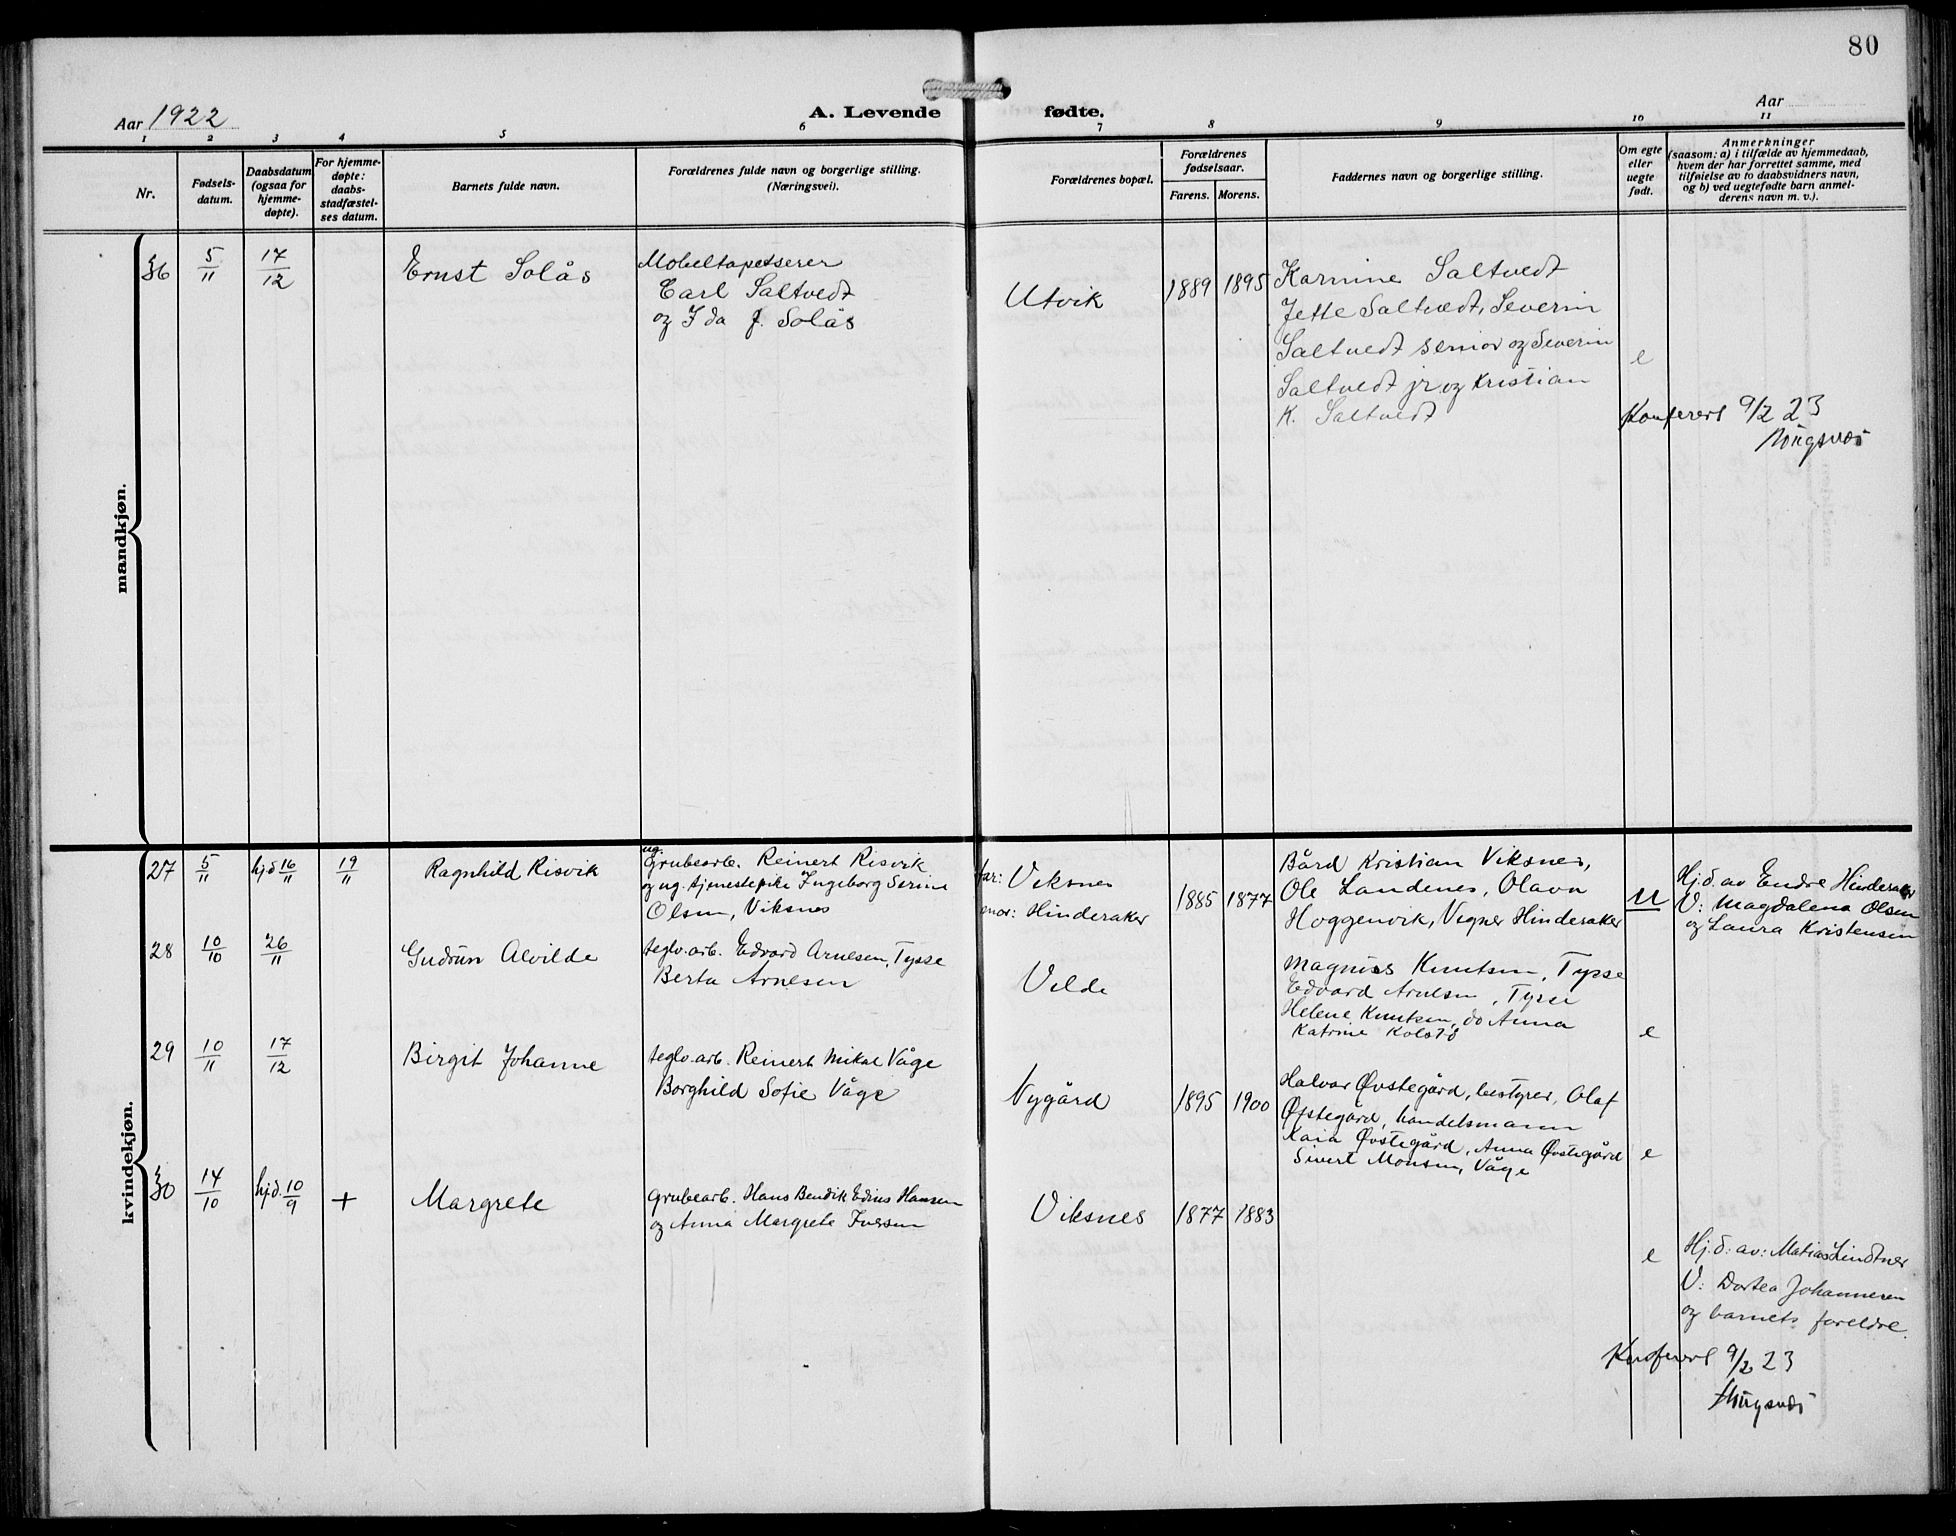 80
Aar 1922
A. Levende fødte.
Aar
1 2 3 4 5 6 7 8 9 10 11
Nr.
Fødsels-
datum.
Daabsdatum
(ogsaa for
hjemme-
døpte).
For hjemme-
døpte:
daabs-
stadfæstel-
ses datum.
Barnets fulde navn.
Forældrenes fulde navn og borgerlige stilling.
(Næringsvei).
Forældrenes bopæl.
Forældrenes
fødselsaar.
Farens. Morens.
Faddernes navn og borgerlige stilling.
Om egte
eller
uegte
født.
Anmerkninger
(saasom: a) i tilfælde av hjemmedaab,
hvem der har forrettet samme, med
tilføielse av to daabsvidners navn,
og b) ved uegtefødte barn anmel-
derens navn m. v.).
mandkjøn.
36
5/11
17/12
Ernst Solås
Møbeltapetserer
Carl Saltvedt
og Ida J. Solås
Utvik
1889 1895
Karnine Saltvedt
Jette Saltvedt, Severin
Saltvedt senior og Severin
Saltvedt jr. og Kristian
K. Saltvedt
e
Konferert 9/2 23
kvindekjøn.
27
5/11
hjd 16/11
19/11
Ragnhild Risvik
ug.
Grubearb. Reinert Risvik
og ug. tjenestepike Ingeborg Serine
Olsen, Viksnes
far: Viksnes
mor: Hinderaker
1885 1877
Bård Kristian Viksnes,
Ole Landenes, Olava
Hoggenvik, Vigner Hinderaker
U
Hj.d. av Endre Hinderaker
V: Magdalena Olsen
og Laura Kristensen
28
10/10
26/11
Gudrun Alvilde
teglv.arb. Edvard Arnesen, Tysse
Berta Arnesen
Velde
Magnus Knutsen, Tysse
Edvard Arnesen, Tysse
Helene Knutsen, do Anna
Katrine Kolstø
e
29
10/11
17/12
Birgit Johanne
teglv.arb. Reinert Mikal Våge
Borghild Sofie Våge
Nygård
1895 1900
Halvor Øvstegård, bestyrer, Olaf
Øvstegård, handelsmann
Kaia Øvstegård, Anna Øvstegård
Sivert Monsen, Våge
e
30
14/10
hjd. 10/9
+
Margrete
Grubearb. Hans Bendik Edius Hansen
og Anna Margrete Iversen
Viksnes
1877 1883
e
Hj.d: av: Matias Lindtner
V: Dortea Johannesen
og barnets foreldre.
Konferert 9/2 23